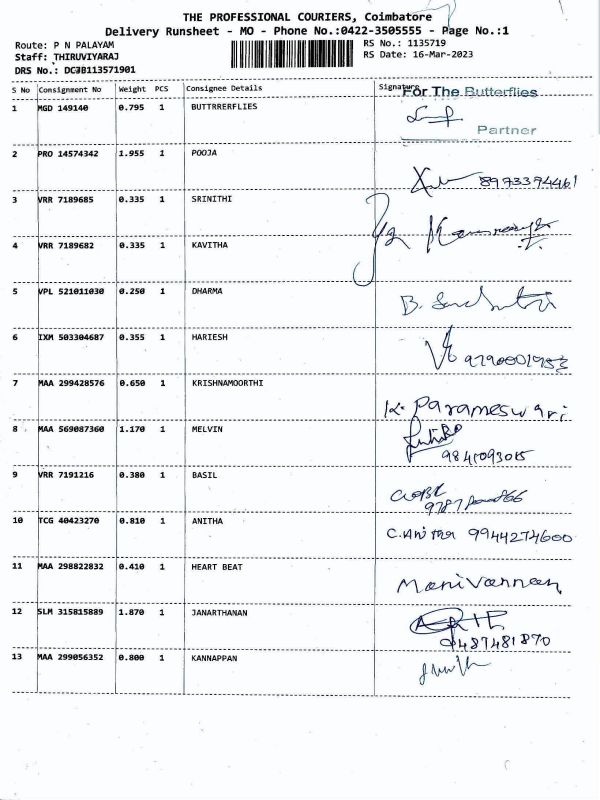 THE PROFESSIONAL COURIERS, Coimbatore
Delivery Runsheet - MO - Phone No.:0422-3505555 - Page No.:1
Route: P N PALAYAM
RS No.: 1135719
Staff: THIRUVIYARAJ
RS Date: 16-Mar-2023
DRS No.:
S No Consignment No Weight PCS Consignee Details Signature
For The Butterflies
1 MGD 149140 0.795 1 BUTTRRERFLIES
Partner
2 PRO 14574342 1.955 1 POOJA
8973374461
3 VRR 7189685 0.335 1 SRINITHI
4 VRR 7189682 0.335 1 KAVITHA
5 VPL 521011030 0.250 1 DHARMA
B.
6 IXM 503304687 0.355 1 HARIESH
9790001953
7 MAA 299428576 0.650 1 KRISHNAMOORTHI
K. Parameswari
8 MAA 569087360 1.170 1 MELVIN
9841093015
9 VRR 7191216 0.380 1 BASIL
10 TCG 40423270 0.810 1 ANITHA
C.Anitha 9944274600
11 MAA 298822832 0.410 1 HEART BEAT
Manivannan
12 SLM 315815889 1.870 1 JANARTHANAN
9487481870
13 MAA 299056352 0.800 1 KANNAPPAN